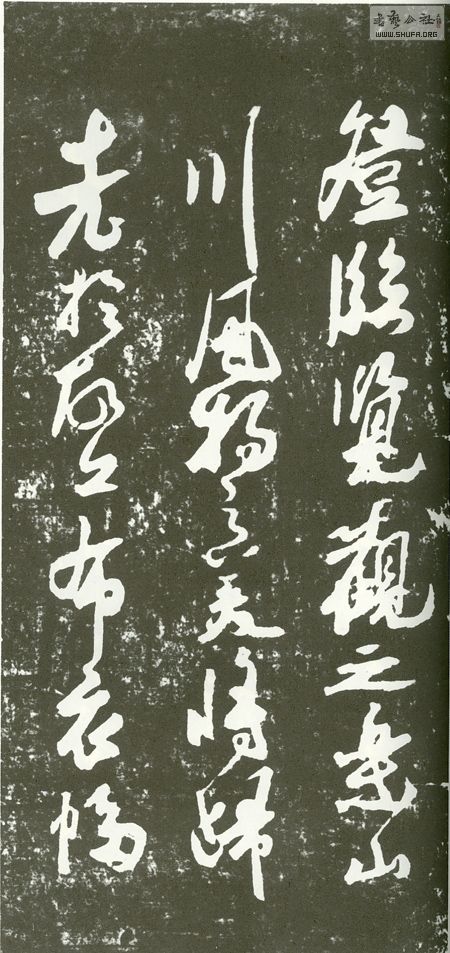 書藝公社
WWW.SHUFA.ORG
登臨覽觀之樂山
川風物之美將歸
老於故丘布衣幅